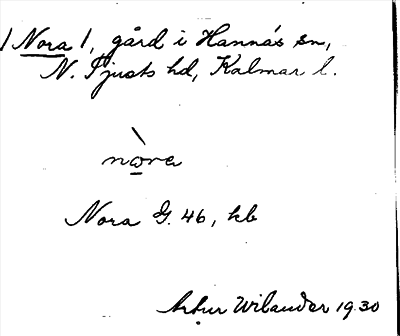 /Nora/, gård i Hannäs sn,
N. Tjusts hd, Kalmar l.
nòra
Nora G. 46, kb
Artur Wilander 1930